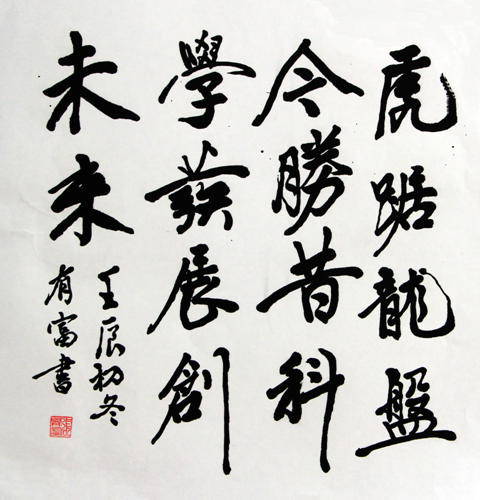 虎踞龍盤
今勝昔科
學發展創
未來
壬辰初冬
有富書